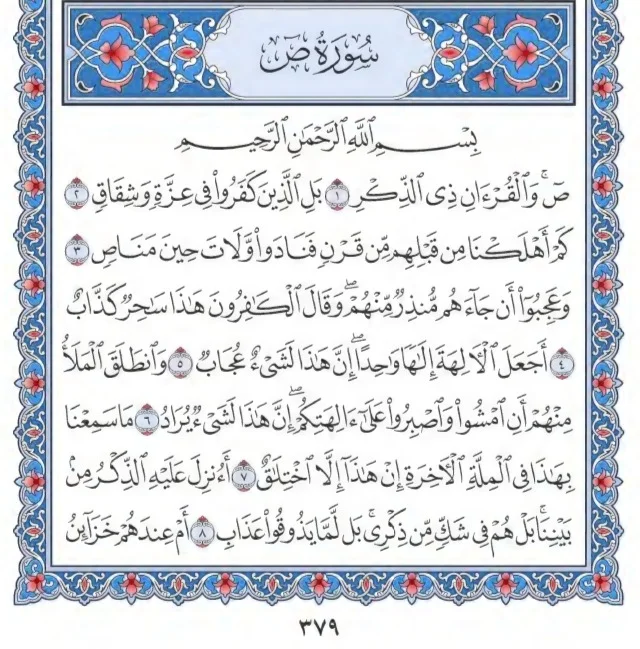 سُورَةُ صٓ
بِسۡمِ ٱللَّهِ ٱلرَّحۡمَٰنِ ٱلرَّحِيمِ
صٓۚ وَٱلۡقُرۡءَانِ ذِي ٱلذِّكۡرِ ١ بَلِ ٱلَّذِينَ كَفَرُواْ فِي عِزَّةٖ وَشِقَاقٖ ٢
كَمۡ أَهۡلَكۡنَا مِن قَبۡلِهِم مِّن قَرۡنٖ فَنَادَواْ وَّلَاتَ حِينَ مَنَاصٖ ٣
وَعَجِبُوٓاْ أَن جَآءَهُم مُّنذِرٞ مِّنۡهُمۡۖ وَقَالَ ٱلۡكَٰفِرُونَ هَٰذَا سَٰحِرٞ كَذَّابٌ
٤ أَجَعَلَ ٱلۡأٓلِهَةَ إِلَٰهٗا وَٰحِدًاۖ إِنَّ هَٰذَا لَشَيۡءٌ عُجَابٞ ٥ وَٱنطَلَقَ ٱلۡمَلَأُ
مِنۡهُمۡ أَنِ ٱمۡشُواْ وَٱصۡبِرُواْ عَلَىٰٓ ءَالِهَتِكُمۡۖ إِنَّ هَٰذَا لَشَيۡءٞ يُرَادُ ٦ مَا سَمِعۡنَا
بِهَٰذَا فِي ٱلۡمِلَّةِ ٱلۡأٓخِرَةِ إِنۡ هَٰذَآ إِلَّا ٱخۡتِلَٰقٌ ٧ أَءُنزِلَ عَلَيۡهِ ٱلذِّكۡرُ مِنۢ
بَيۡنِنَاۚ بَلۡ هُمۡ فِي شَكّٖ مِّن ذِكۡرِيۚ بَل لَّمَّا يَذُوقُواْ عَذَابِ ٨ أَمۡ عِندَهُمۡ خَزَآئِنُ
٣٧٩